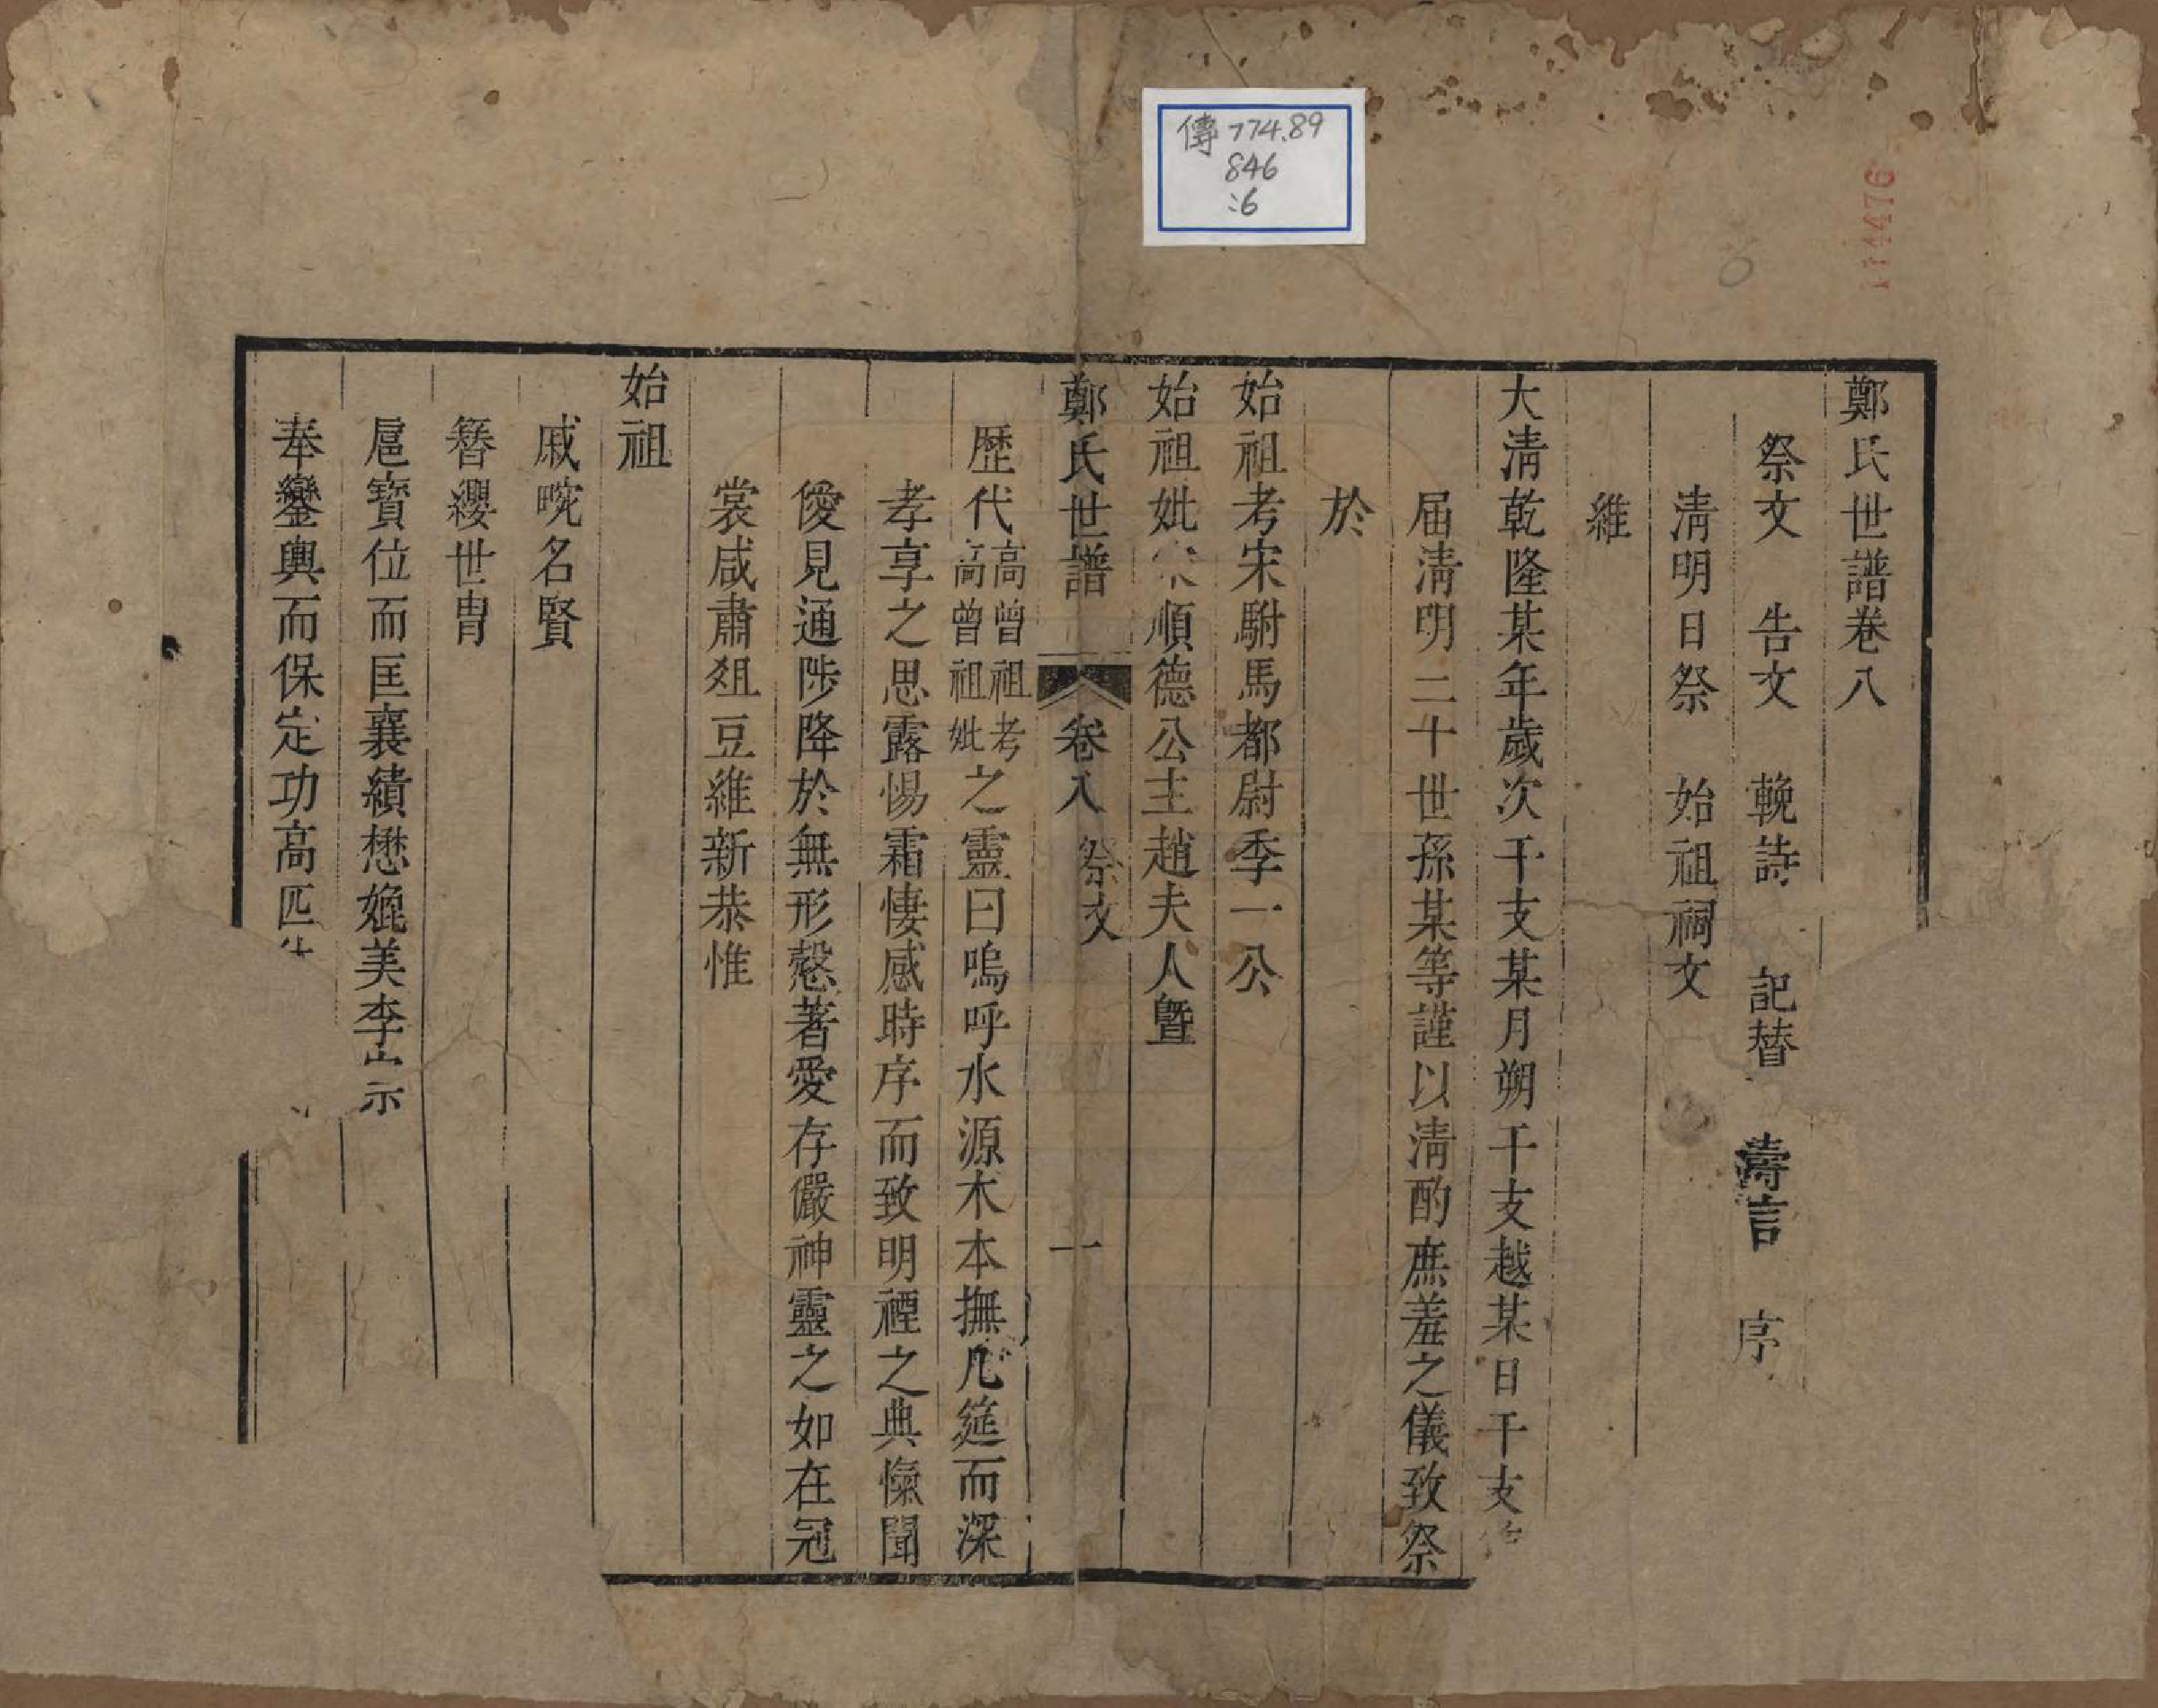 傳 774.89
846
:6
114476
鄭氏世譜卷八
祭文 告文 輓詩 記替 壽言 序
淸明日祭 始祖祠文
維
大淸乾隆某年歲次干支某月朔干支越某日干支
届淸明二十世孫某等謹以淸酌庶羞之儀致祭
於
始祖考宋駙馬都尉季一公
始祖妣宋順德公主趙夫人曁
鄭氏世譜 卷八 祭文 一
歷代高曾祖考高曾祖妣之靈曰嗚呼水源木本撫几筵而深
孝享之思露惕霜悽感時序而致明禋之典愾聞
僾見通陟降於無形慤著愛存儼神靈之如在冠
裳咸肅俎豆維新恭惟
始祖
戚畹名賢
簪纓世胄
扈寶位而匡襄績懋媲美李
奉鑾輿而保定功高匹